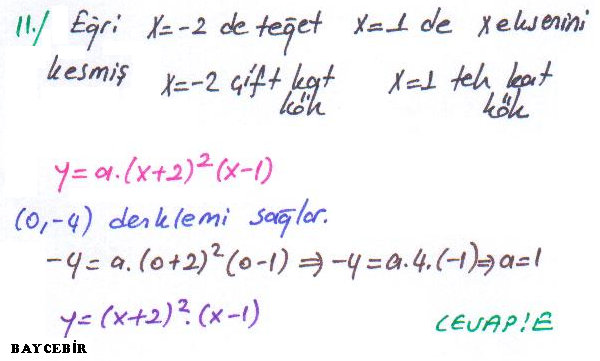 11./ Eğri x=-2 de teğet x=1 de x eksenini
kesmiş x=-2 çift kat kök x=1 tek kat kök
y=a.(x+2)²(x-1)
(0,-4) denklemi sağlar.
-4=a.(0+2)²(0-1)⇒-4=a.4.(-1)⇒a=1
y=(x+2)².(x-1) CEVAP:E
BAYCEBİR